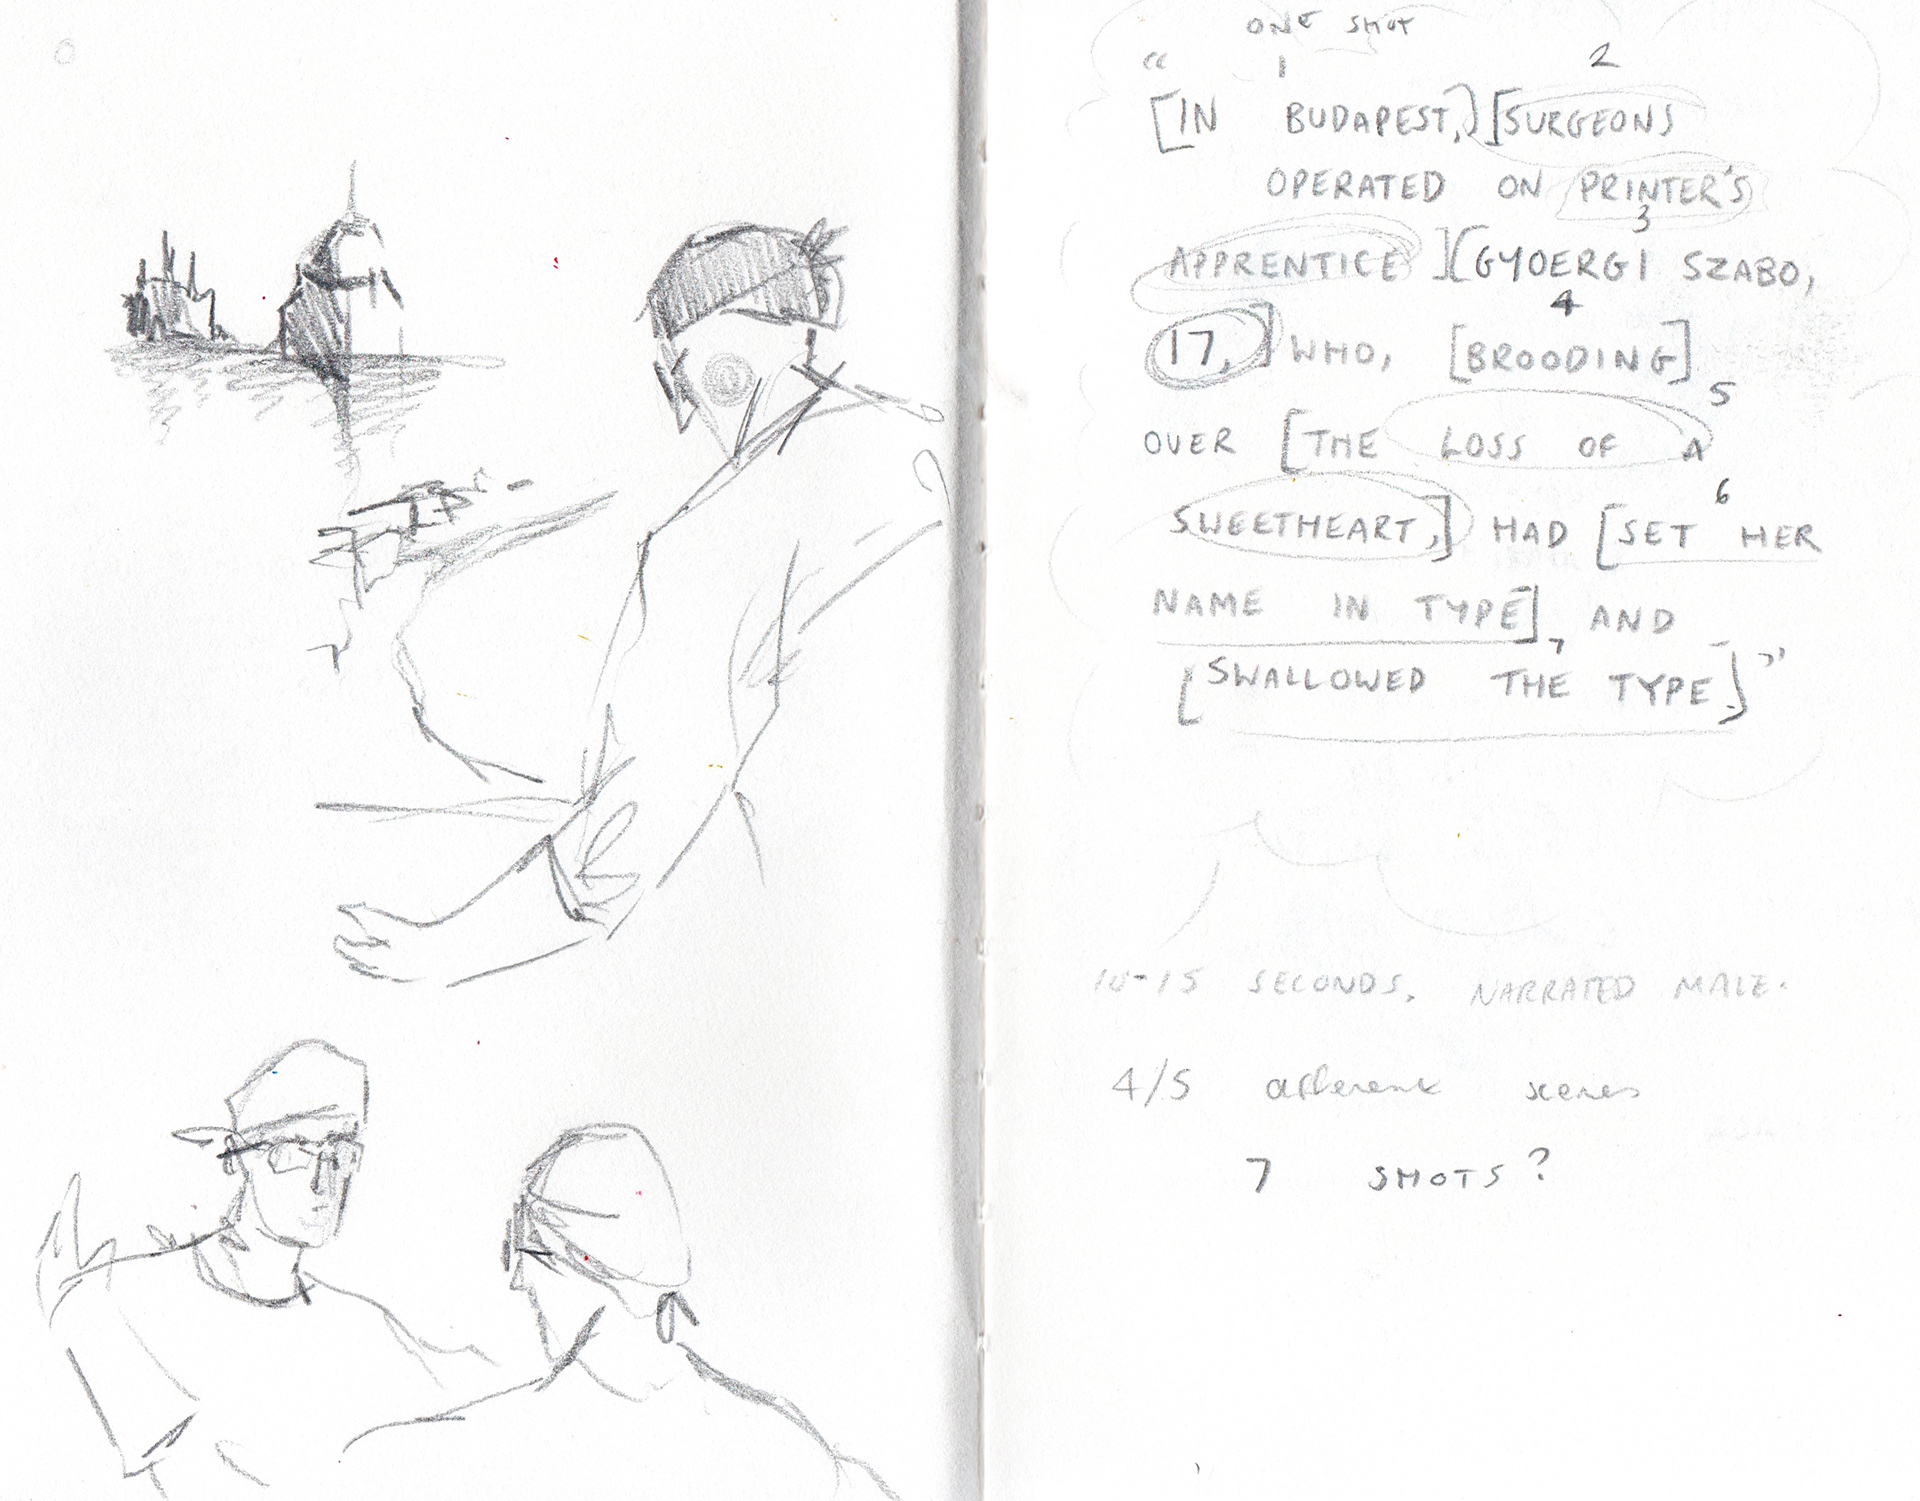 ONE SHOT
" 1 2
[IN BUDAPEST,][SURGEONS
OPERATED ON PRINTER'S
3
APPRENTICE][GYOERGI SZABO,
4
17,] WHO, [BROODING]
5
OVER [THE LOSS OF A
6
SWEETHEART,] HAD [SET HER
NAME IN TYPE], AND
7
[SWALLOWED THE TYPE.]"
10-15 SECONDS. NARRATED MALE.
4/5 different scenes
7 SHOTS?